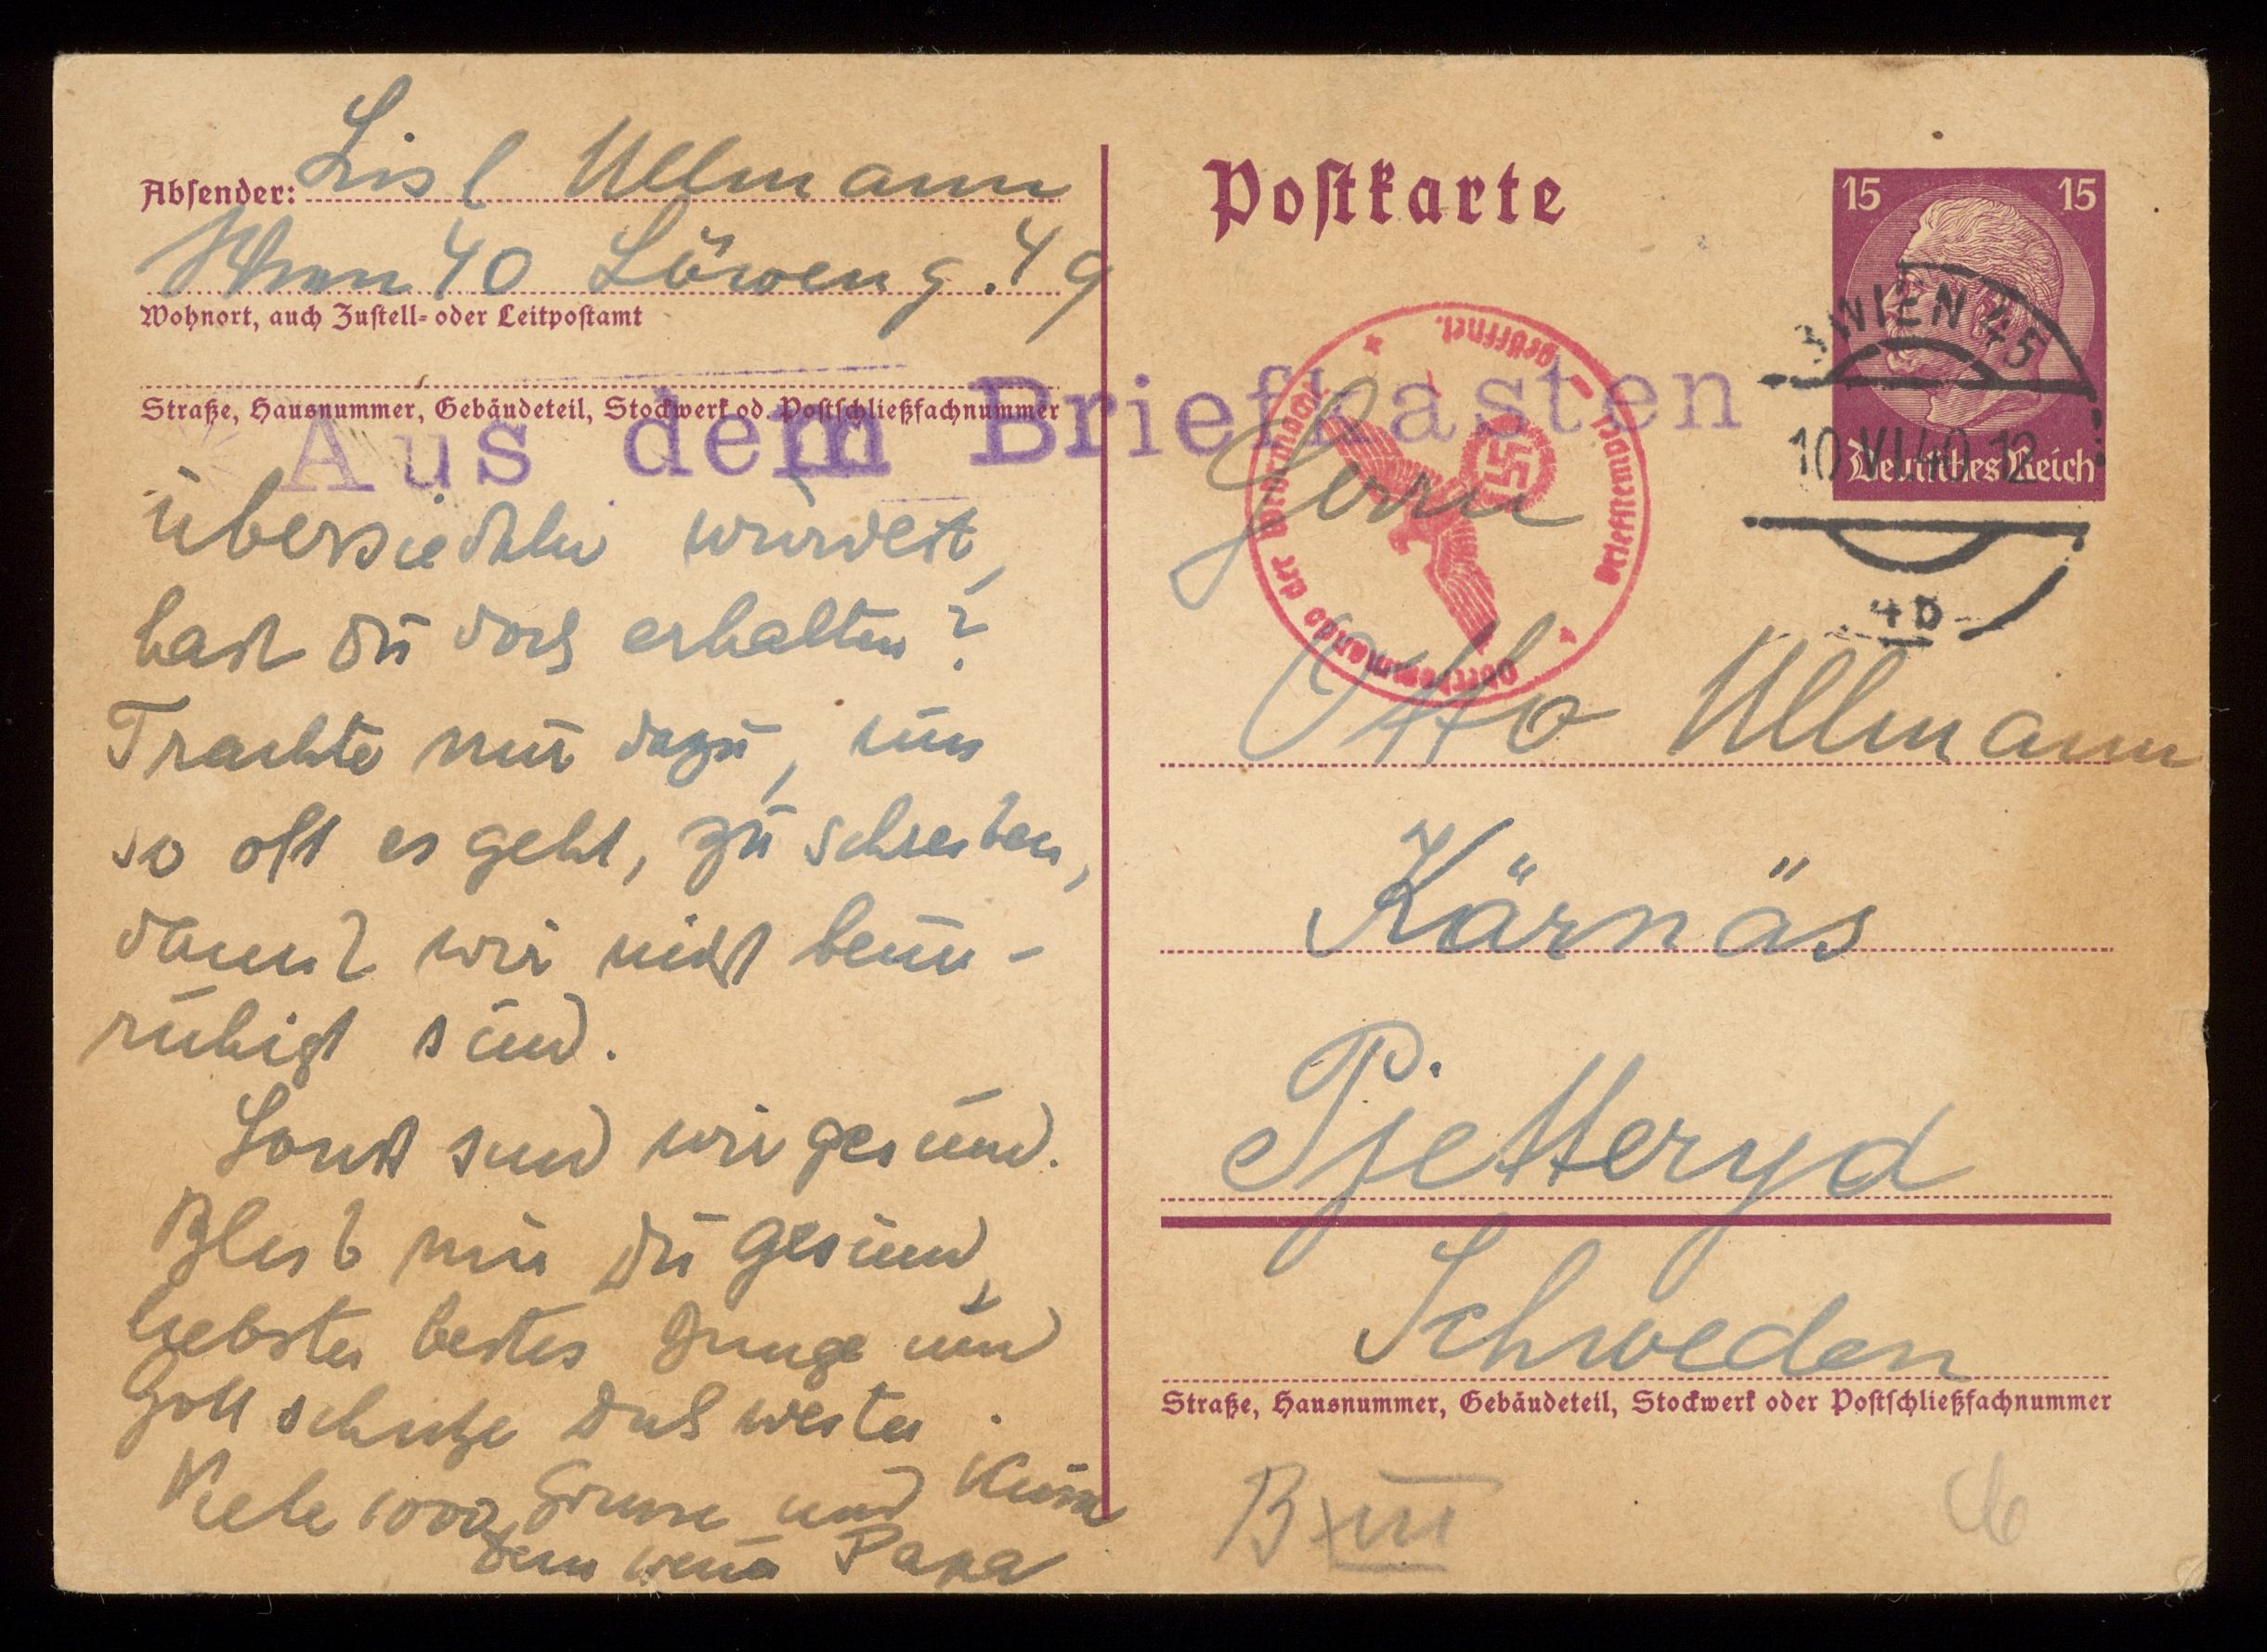 Absender: Lisl Ullmann
Wien 40 Löweng. 49
Wohnort, auch Zustell- oder Leitpostamt
Straße, Hausnummer, Gebäudeteil, Stockwerk od. Postschließfachnummer
Aus dem Briefkasten
übersiedeln würdest,
hast Du doch erhalten?
Trachte nur dazu, uns
so oft es geht, zu schreiben,
damit wir nicht beun-
ruhigt sind.
Sonst sind wir gesund.
Bleib nur Du gesund,
liebster bester Junge und
Gott schütze Dich weiter.
Viele 1000 Grüsse und Küsse
Dein Papa
Postkarte
15 15
Deutsches Reich
WIEN 45
10.VI.40.12
4b
Oberkommando der Wehrmacht
Briefstempel
geöffnet.
Herrn
Otto Ullmann
Kärnäs
P.
Pjetteryd
Schweden
Straße, Hausnummer, Gebäudeteil, Stockwerk oder Postschließfachnummer
B XIII